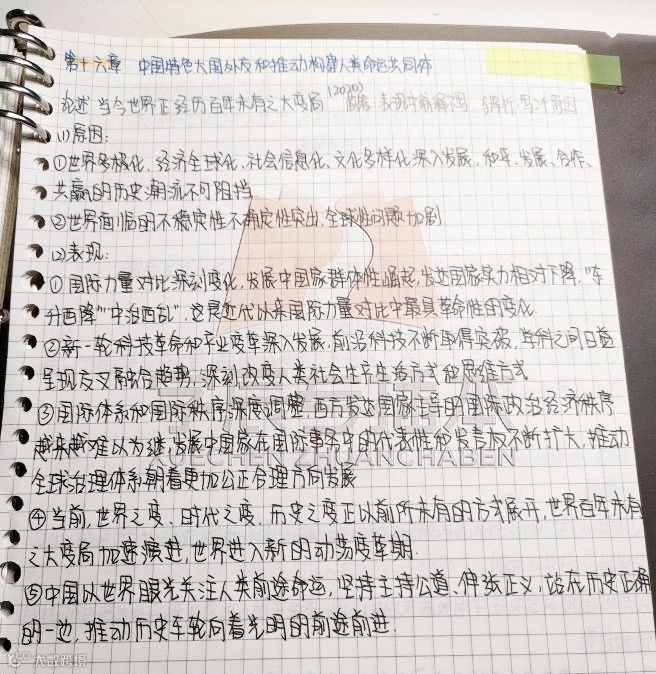 第十六章 中国特色大国外交和推动构建人类命运共同体
论述 当今世界正经历百年未有之大变局 (2020) 表现 2个原因
(1)原因:
①世界多极化、经济全球化、社会信息化、文化多样化深入发展,和平、发展、合作、
共赢的历史潮流不可阻挡
②世界面临的不稳定性不确定性突出,全球性问题加剧
(2)表现:
①国际力量对比深刻变化,发展中国家群体性崛起,发达国家实力相对下降,"东
升西降""中治西乱",这是近代以来国际力量对比中最具革命性的变化.
②新一轮科技革命和产业变革深入发展,前沿科技不断取得突破,学科之间日益
呈现交叉融合趋势,深刻改变人类社会生产生活方式和思维方式
③国际体系和国际秩序深度调整,西方发达国家主导的国际政治经济秩序
越来越难以为继,发展中国家在国际事务中的代表性和发言权不断扩大,推动
全球治理体系朝着更加公正合理方向发展
ZHUANCHABEN
④当前,世界之变、时代之变、历史之变正以前所未有的方式展开,世界百年未有
之大变局加速演进,世界进入新的动荡变革期.
⑤中国以世界眼光关注人类前途命运,坚持主持公道、伸张正义,站在历史正确
的一边,推动历史车轮向着光明的前途前进.
大数跨境